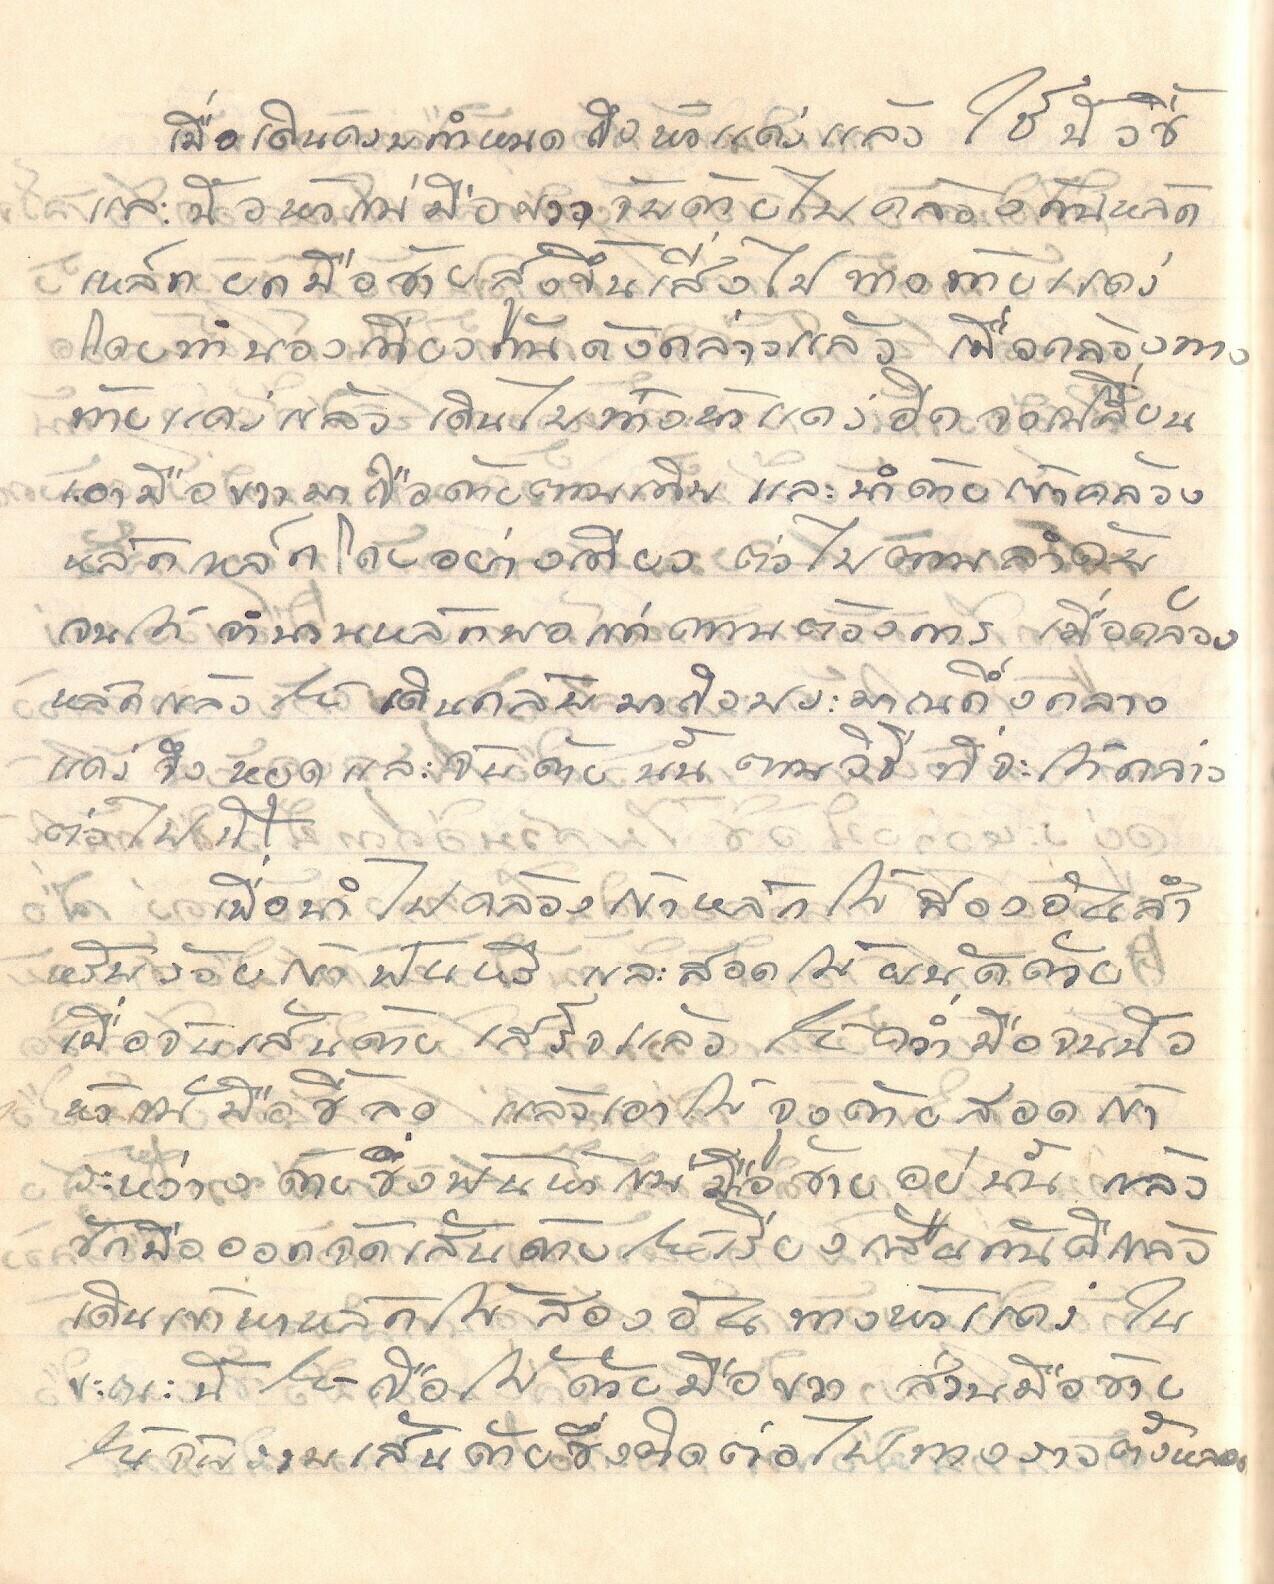 เมื่อเดินครบกำหนดถึงหัวแคร่แล้ว ใช้นิ้วชี้
และนิ้วหัวแม่มือขวาจับด้ายไปคล้องกับหลัก
เหล็ก ยกมือซ้ายสูงขึ้นเสี่งไปทางท้ายแคร่
โดยทำนองเดียวกันดังกล่าวแล้ว เมื่อคล้องทาง
ท้ายแคร่แล้ว เดินไปทางหัวแคร่อีก จงเปลี่ยน
เอามือขวามาถือด้ายตามเดิม และนำด้ายเข้าคล้อง
หลักเหล็กโดยอย่างเดียว ต่อไปตามลำดับ
จนได้จำนวนหลักพอแก่ความต้องการ เมื่อคล้อง
หลักแล้ว ให้เดินกลับมาถึงประมาณกึ่งกลาง
แคร่ จึงหยุดและจับด้ายนั้นตามวิธีที่จะได้กล่าว
ต่อไปนี้
เพื่อนำไปคล้องเข้าหลักไม้สองอันสำ
หรับร้อยเข้าฟันหวี และสอดไม้ขนัดด้าย
เมื่อจับเส้นด้ายเสร็จแล้ว ให้คว่ำมือจนนิ้ว
หัวแม่มือชี้ลง แล้วเอาไม้จูงด้ายสอดเข้า
ระหว่างด้ายซึ่งพันหัวแม่มือซ้ายอยู่นั้น แล้ว
ชักมือออกจัดเส้นด้ายให้เรียงเสมอกันดีแล้ว
เดินเข้าหาหลักไม้สองอันทางหัวแคร่ ใน
ขะณะนี้ให้ถือไม้ด้วยมือขวา ส่วนมือซ้าย
ให้จับรวมเส้นด้ายซึ่งติดต่อไปทางราวตั้งหลอด